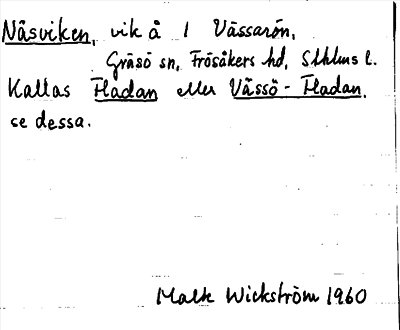 Näsviken, vik å / Vässarön,
Gräsö sn, Frösåkers hd, Sthlms l.
Kallas Fladan eller Vässö-Fladan,
se dessa.
Mats Wickström 1960